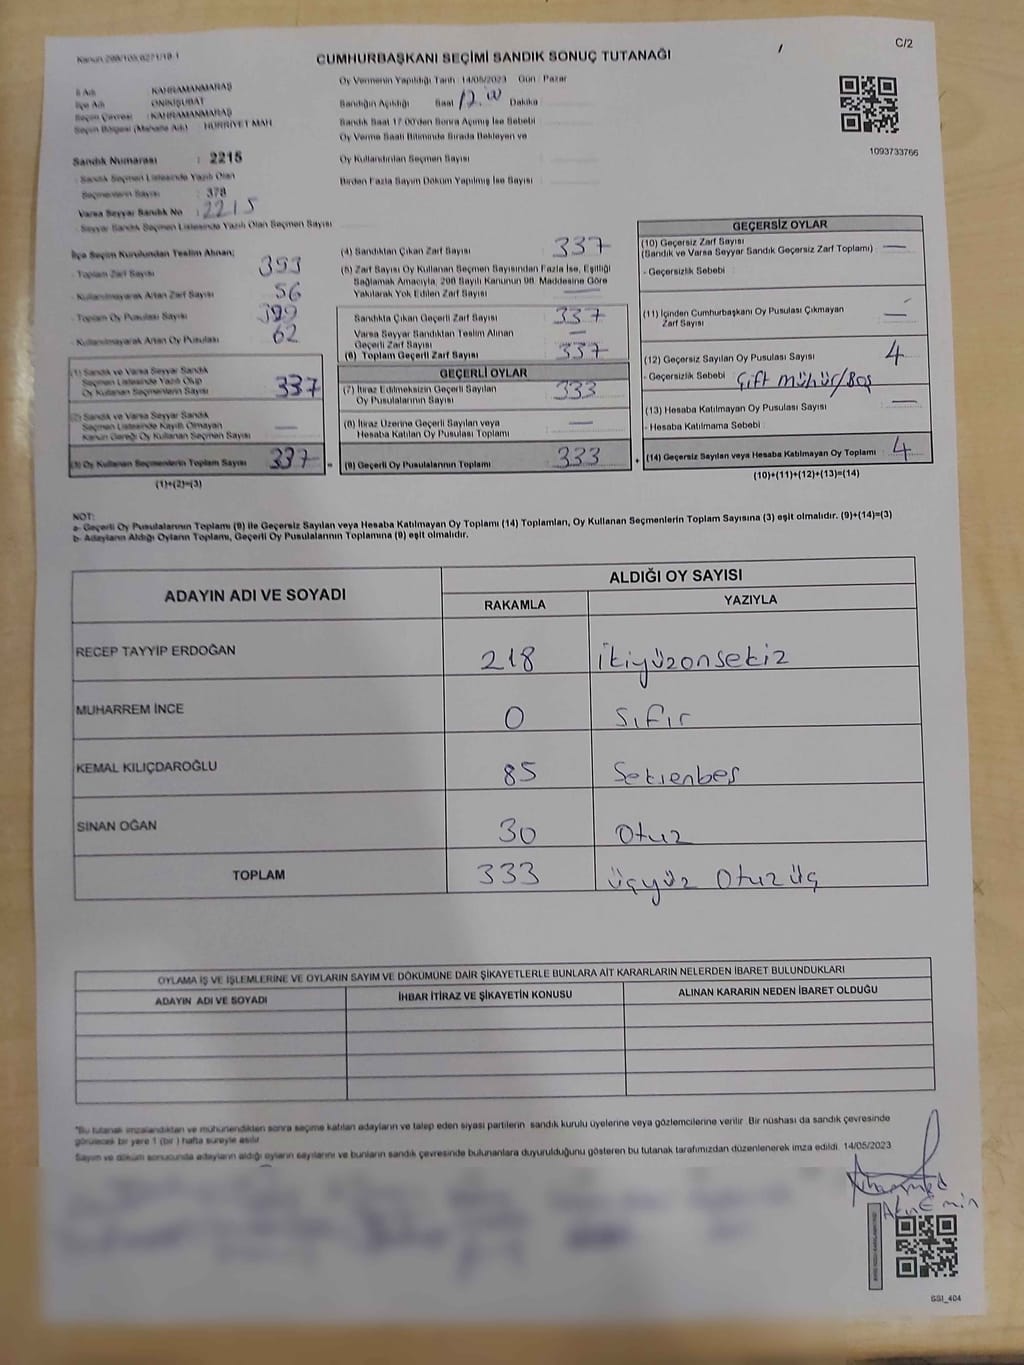 Kanun 298/105;6271/19-1
C/2
CUMHURBAŞKANI SEÇİMİ SANDIK SONUÇ TUTANAĞI
İl Adı : KAHRAMANMARAŞ
İlçe Adı : ONİKİŞUBAT
Seçim Çevresi : KAHRAMANMARAŞ
Seçim Bölgesi (Mahalle Adı) : HÜRRİYET MAH
Sandık Numarası : 2215
- Sandık Seçmen Listesinde Yazılı Olan
Seçmenlerin Sayısı : 378
Varsa Seyyar Sandık No : 2215
- Seyyar Sandık Seçmen Listesinde Yazılı Olan Seçmen Sayısı
Oy Vermenin Yapıldığı Tarih : 14/05/2023 Gün : Pazar
Sandığın Açıldığı Saat Dakika
Sandık Saat 17:00'den Sonra Açımış İse Sebebi :
Oy Verme Saati Bitiminde Sırada Bekleyen ve
Oy Kullandırılan Seçmen Sayısı :
Birden Fazla Sayım Döküm Yapılmış İse Sayısı :
1093733766
İlçe Seçim Kurulundan Teslim Alınan;
- Toplam Zarf Sayısı 393
- Kullanılmayarak Artan Zarf Sayısı 56
- Toplam Oy Pusulası Sayısı 399
- Kullanılmayarak Artan Oy Pusulası 62
(1) Sandık ve Varsa Seyyar Sandık
Seçmen Listesinde Yazılı Olup
Oy Kullanan Seçmenlerin Sayısı 337
(2) Sandık ve Varsa Seyyar Sandık
Seçmen Listesinde Kayıtlı Olmayan
Kanun Gereği Oy Kullanan Seçmen Sayısı —
(3) Oy Kullanan Seçmenlerin Toplam Sayısı 337 =
(1)+(2)=(3)
(4) Sandıktan Çıkan Zarf Sayısı : 337
(5) Zarf Sayısı Oy Kullanan Seçmen Sayısından Fazla İse, Eşitliği
Sağlamak Amacıyla, 298 Sayılı Kanunun 98. Maddesine Göre
Yakılarak Yok Edilen Zarf Sayısı : —
Sandıkta Çıkan Geçerli Zarf Sayısı : 337
Varsa Seyyar Sandıktan Teslim Alınan
Geçerli Zarf Sayısı : —
(6) Toplam Geçerli Zarf Sayısı : 337
GEÇERLİ OYLAR
(7) İtiraz Edilmeksizin Geçerli Sayılan
Oy Pusulalarının Sayısı : 333
(8) İtiraz Üzerine Geçerli Sayılan veya
Hesaba Katılan Oy Pusulası Toplamı : —
(9) Geçerli Oy Pusulalarının Toplamı : 333 +
GEÇERSİZ OYLAR
(10) Geçersiz Zarf Sayısı
(Sandık ve Varsa Seyyar Sandık Geçersiz Zarf Toplamı) : —
- Geçersizlik Sebebi :
(11) İçinden Cumhurbaşkanı Oy Pusulası Çıkmayan
Zarf Sayısı : —
(12) Geçersiz Sayılan Oy Pusulası Sayısı : 4
- Geçersizlik Sebebi : Çift mühür/Boş
(13) Hesaba Katılmayan Oy Pusulası Sayısı : —
- Hesaba Katılmama Sebebi :
(14) Geçersiz Sayılan veya Hesaba Katılmayan Oy Toplamı : 4
(10)+(11)+(12)+(13)=(14)
NOT:
a- Geçerli Oy Pusulalarının Toplamı (9) ile Geçersiz Sayılan veya Hesaba Katılmayan Oy Toplamı (14) Toplamları, Oy Kullanan Seçmenlerin Toplam Sayısına (3) eşit olmalıdır. (9)+(14)=(3)
b- Adayların Aldığı Oyların Toplamı, Geçerli Oy Pusulalarının Toplamına (9) eşit olmalıdır.
ADAYIN ADI VE SOYADI
ALDIĞI OY SAYISI
RAKAMLA YAZIYLA
RECEP TAYYİP ERDOĞAN 218 İkiyüzonsekiz
MUHARREM İNCE 0 Sıfır
KEMAL KILIÇDAROĞLU 85 Seksenbeş
SİNAN OĞAN 30 Otuz
TOPLAM 333 üçyüz Otuz üç
OYLAMA İŞ VE İŞLEMLERİNE VE OYLARIN SAYIM VE DÖKÜMÜNE DAİR ŞİKAYETLERLE BUNLARA AİT KARARLARIN NELERDEN İBARET BULUNDUKLARI
ADAYIN ADI VE SOYADI İHBAR İTİRAZ VE ŞİKAYETİN KONUSU ALINAN KARARIN NEDEN İBARET OLDUĞU
*Bu tutanak imzalandıktan ve mühürlendikten sonra seçime katılan adayların ve talep eden siyasi partilerin sandık kurulu üyelerine veya gözlemcilerine verilir. Bir nüshası da sandık çevresinde
görülecek bir yere 1 (bir ) hafta süreyle asılır.
Sayım ve döküm sonucunda adayların aldığı oyların sayılarını ve bunların sandık çevresinde bulunanlara duyurulduğunu gösteren bu tutanak tarafımızdan düzenlenerek imza edildi. 14/05/2023
Muhammed
SSI_404